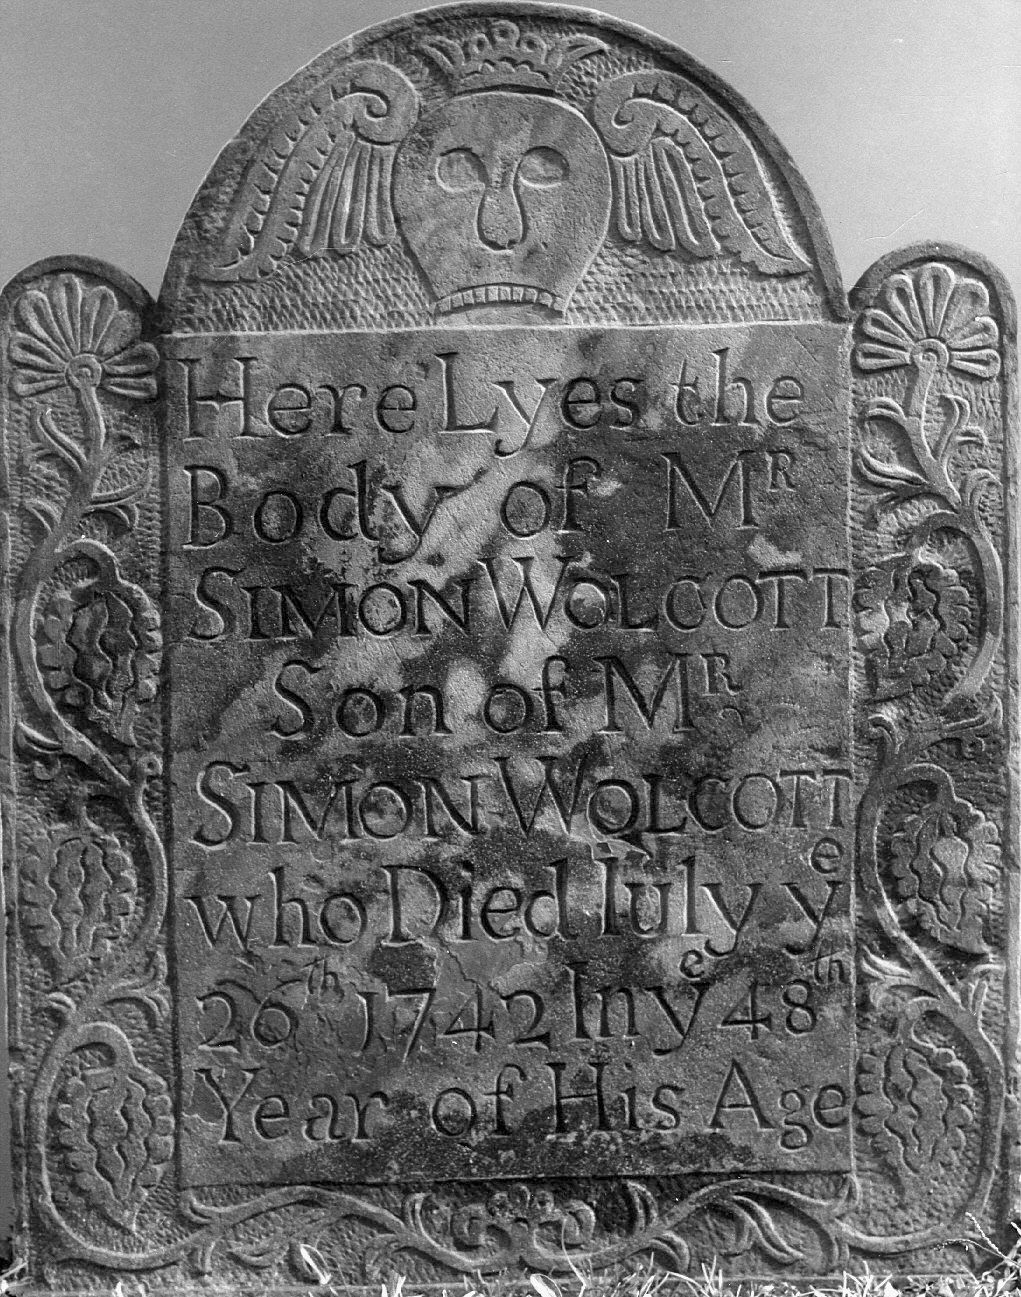 Here Lyes the
Body of Mᴿ
SIMON WOLCOTT
Son of Mᴿ
SIMON WOLCOTT
who Died Iuly yᵉ
26ᵗʰ 1742 In yᵉ 48ᵗʰ
Year of His Age